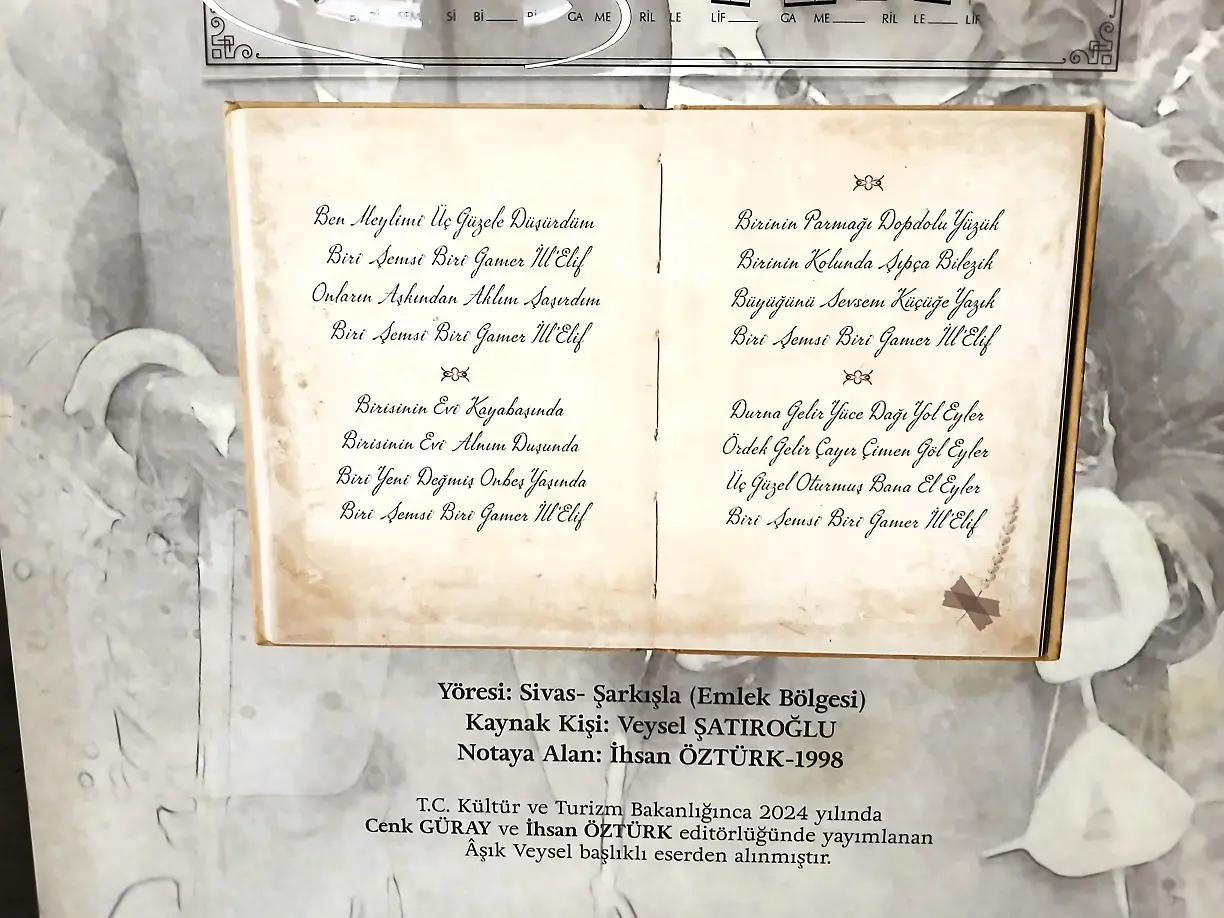 Sİ Bİ___ Rİ GA ME RİL LE LİF___ GA ME___ RİL LE___ LİF
Ben Meylimi Üç Güzele Düşürdüm
Biri Şemsi Biri Gamer İll'Elif
Onların Aşkından Aklım Şaşırdım
Biri Şemsi Biri Gamer İll'Elif
Birisinin Evi Kayabaşında
Birisinin Evi Alnım Duşunda
Biri Yeni Değmiş Onbeş Yaşında
Biri Şemsi Biri Gamer İll'Elif
Birinin Parmağı Dopdolu Yüzük
Birinin Kolunda Şıpça Bilezik
Büyüğünü Sevsem Küçüğe Yazık
Biri Şemsi Biri Gamer İll'Elif
Durna Gelir Yüce Dağı Yol Eyler
Ördek Gelir Çayır Çimen Göl Eyler
Üç Güzel Oturmuş Bana El Eyler
Biri Şemsi Biri Gamer İll'Elif
Yöresi: Sivas- Şarkışla (Emlek Bölgesi)
Kaynak Kişi: Veysel ŞATIROĞLU
Notaya Alan: İhsan ÖZTÜRK-1998
T.C. Kültür ve Turizm Bakanlığınca 2024 yılında
Cenk GÜRAY ve İhsan ÖZTÜRK editörlüğünde yayımlanan
Âşık Veysel başlıklı eserden alınmıştır.